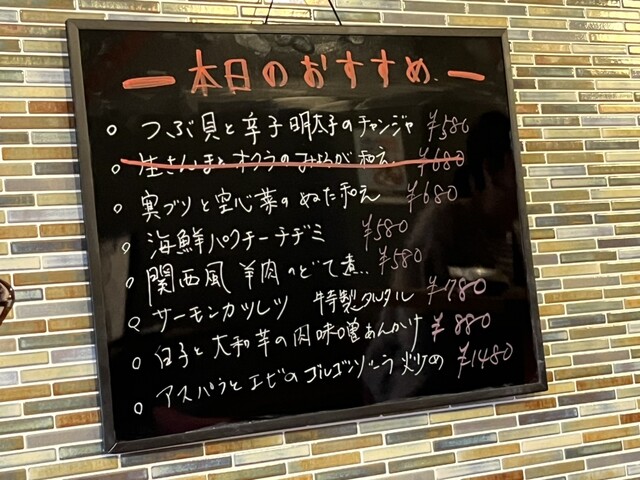 本日のおすすめ
つぶ貝と辛子明太子のチャンジャ ¥580
生さんまとオクラのみょうが和え ¥680
寒ブリと空心菜のぬた和え ¥680
海鮮パクチーチヂミ ¥580
関西風 羊肉のどて煮.. ¥580
サーモンカツレツ 特製タルタル ¥780
白子と大和芋の肉味噌あんかけ ¥880
アスパラとエビのゴルゴンゾーラ炒め ¥1480